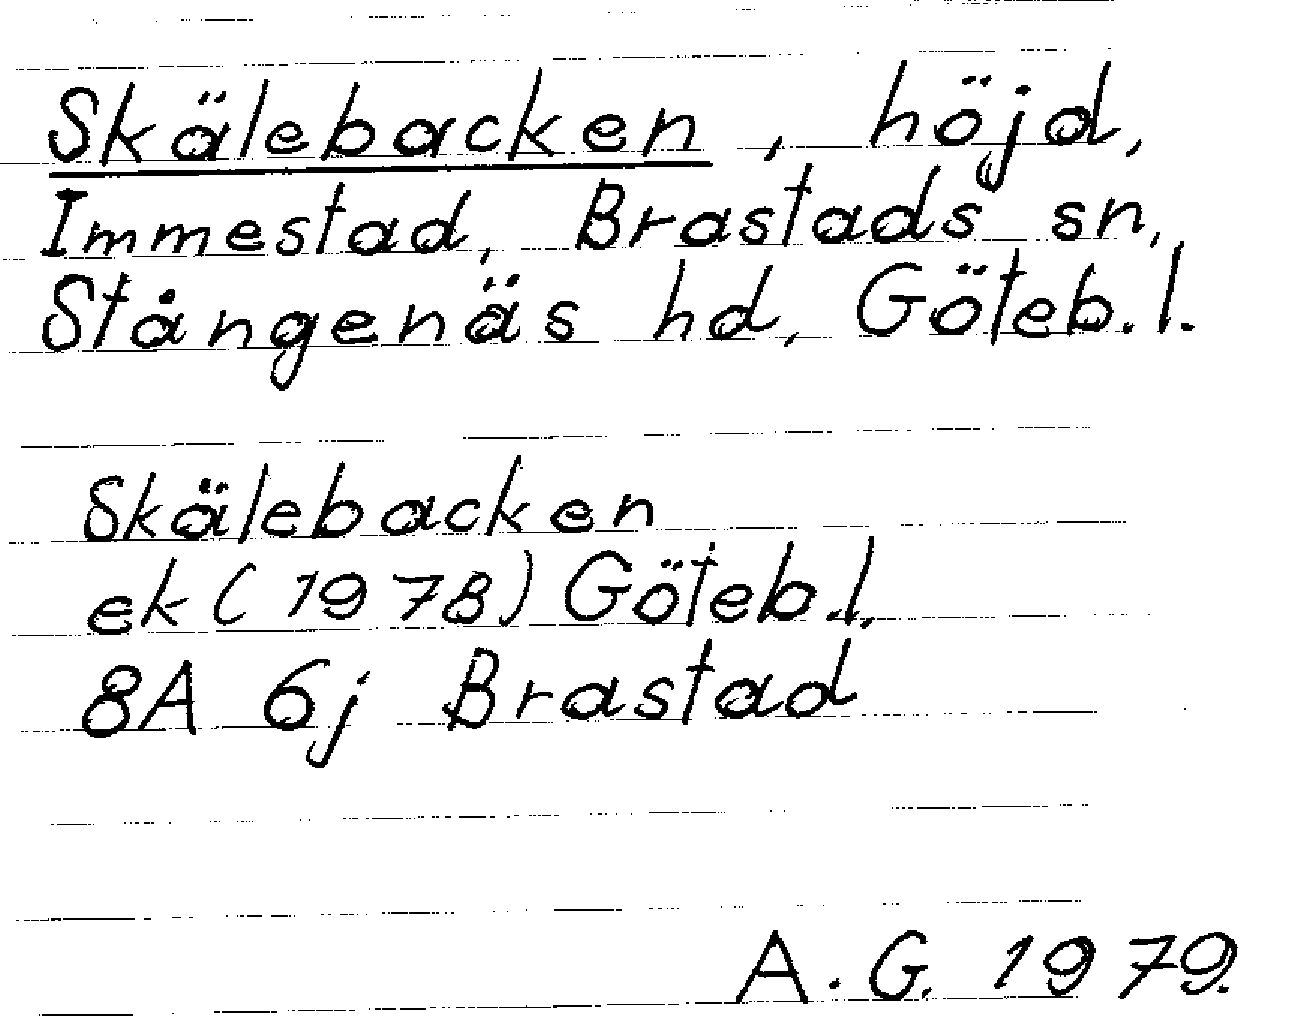 Skälebacken, höjd,
Immestad, Brastads sn,
Stångenäs hd, Göteb. l.
Skälebacken
ek (1978) Göteb. l.
8A 6j Brastad
A. G. 1979.